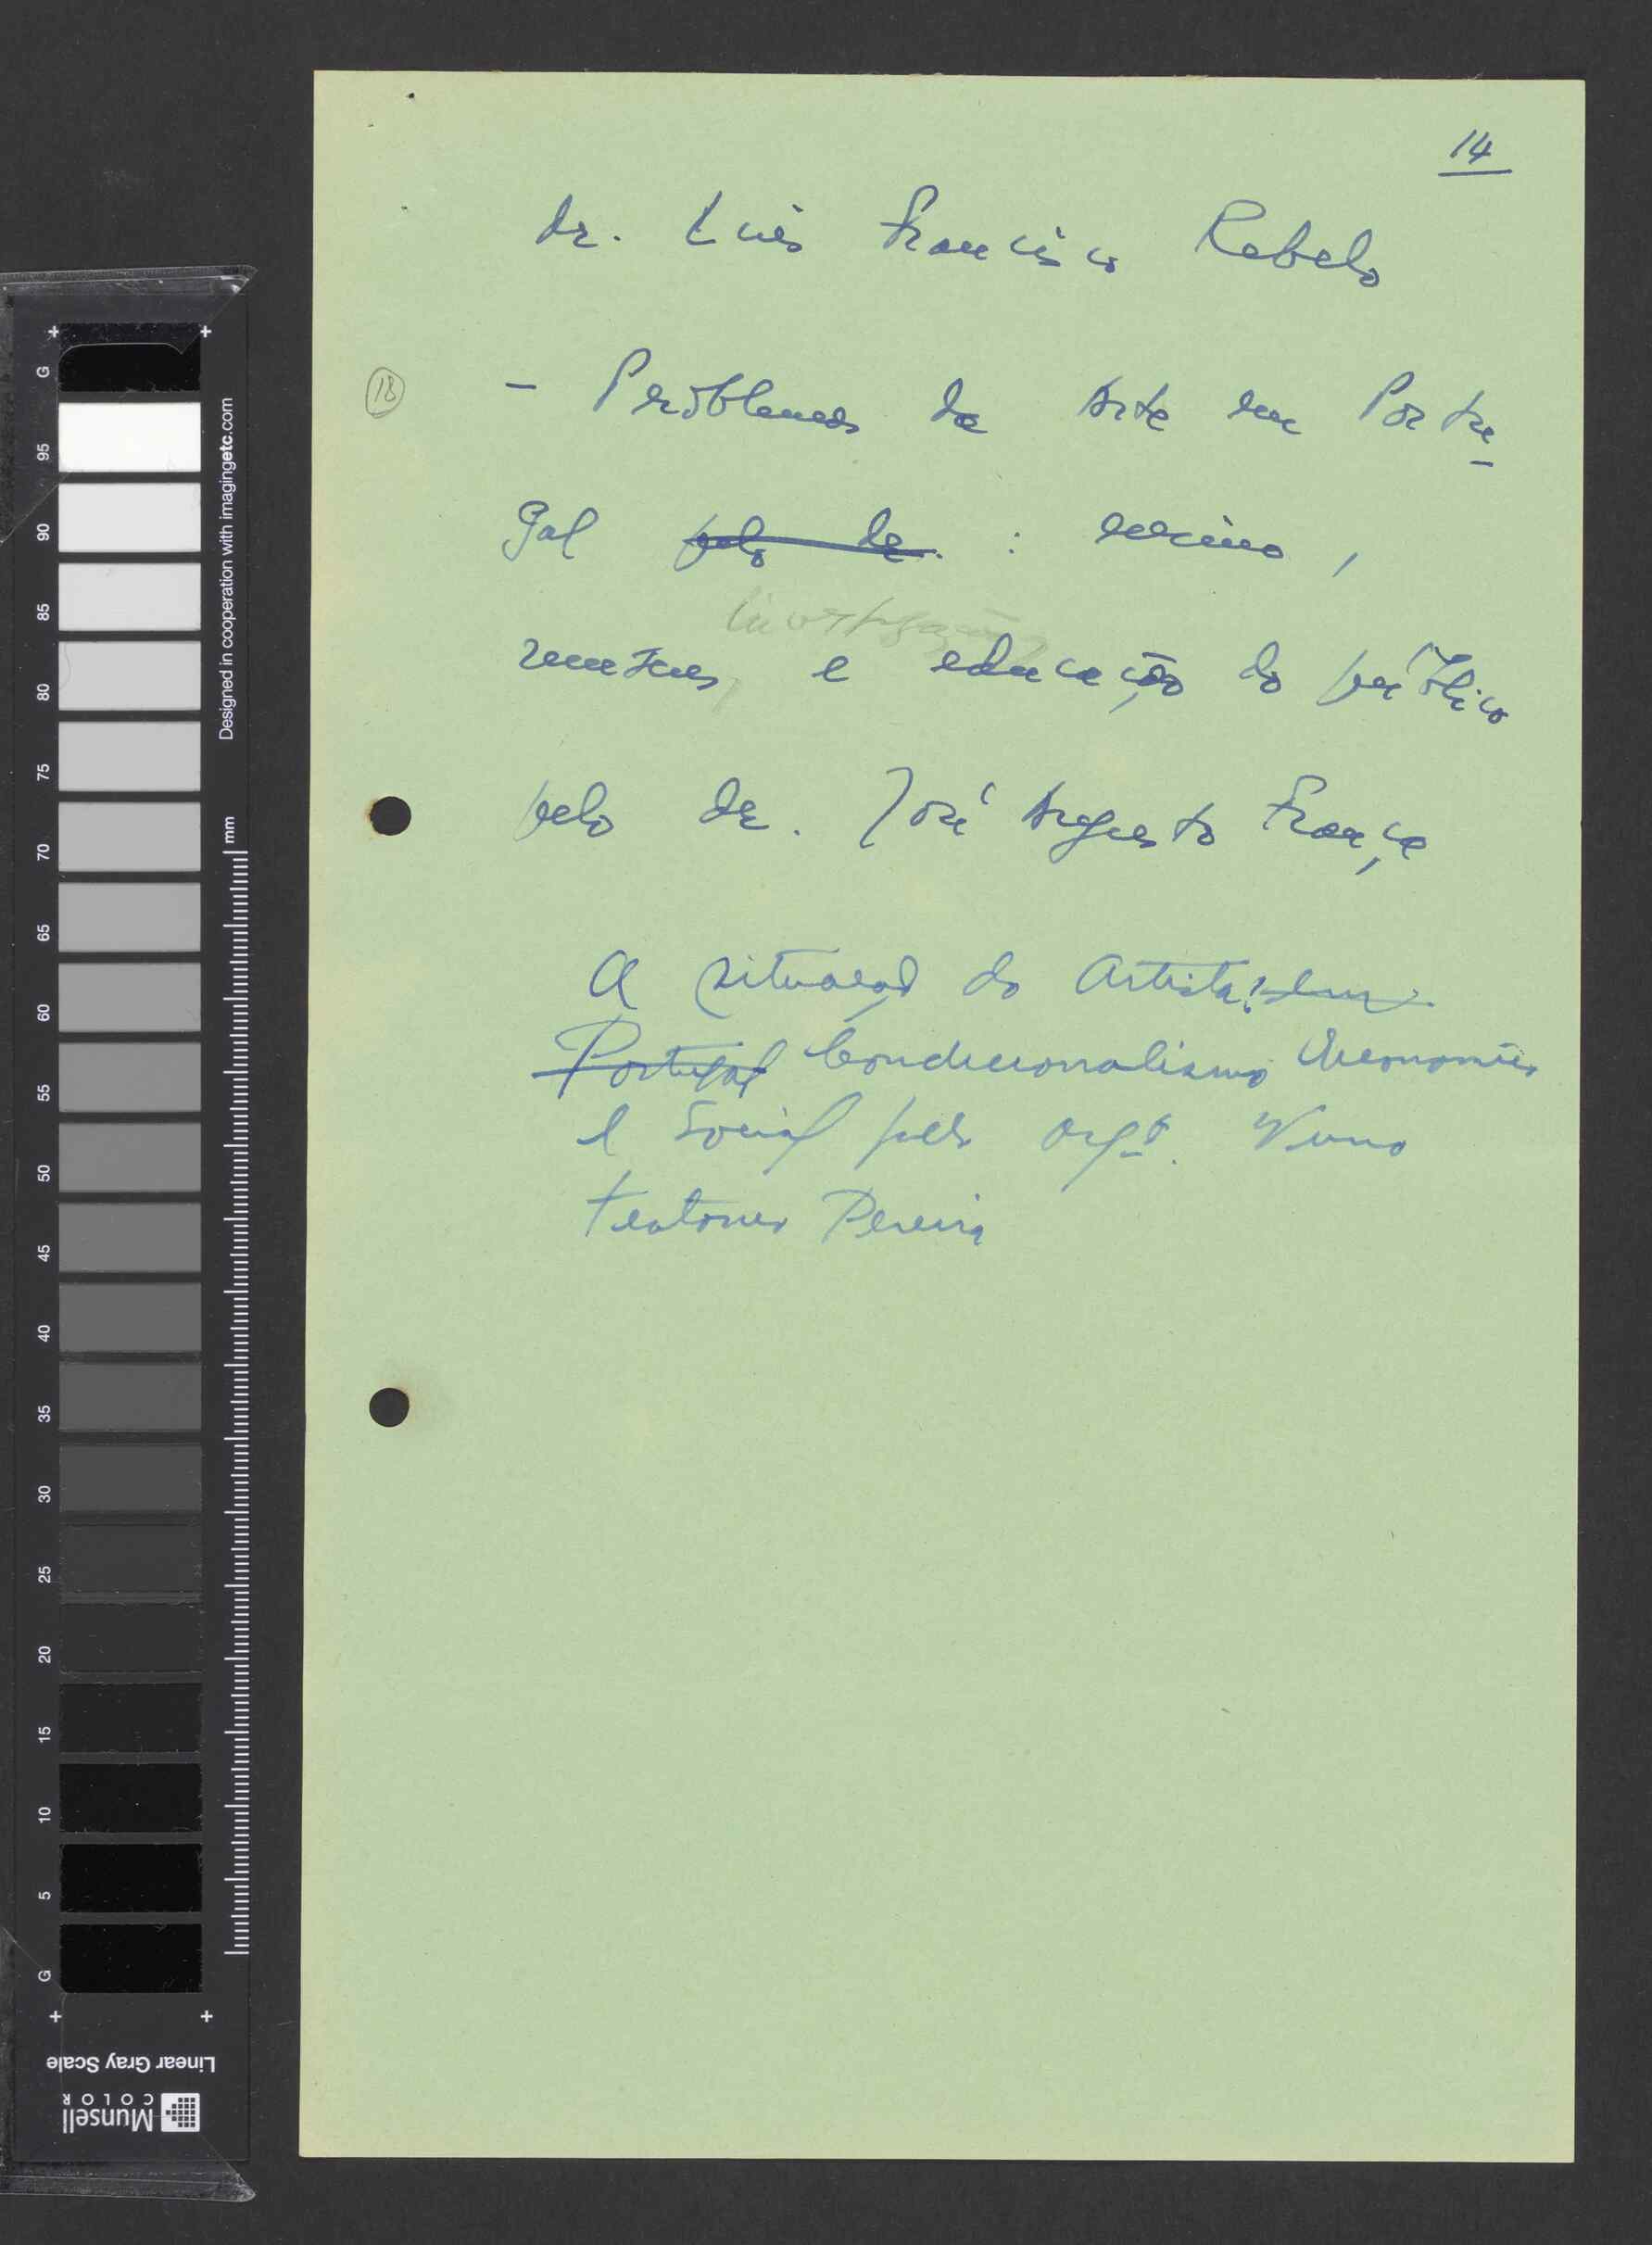 14
dr. Luís Francisco Rebelo
18
- Problemas da Arte em Portu-
gal pelo dr. : ensino,
investigação
museus, e educação do público
pelo dr. José Augusto França
A situação do Artista: em
Portugal Condicionalismo Económico
e Social pelo arqtº. Nuno
Teotonio Pereira
G 95 90 85 80 75 70 65 60 55 50 45 40 35 30 25 20 15 10 5 G
Designed in cooperation with imagingetc.com
mm
Linear Gray Scale
Munsell
COLOR